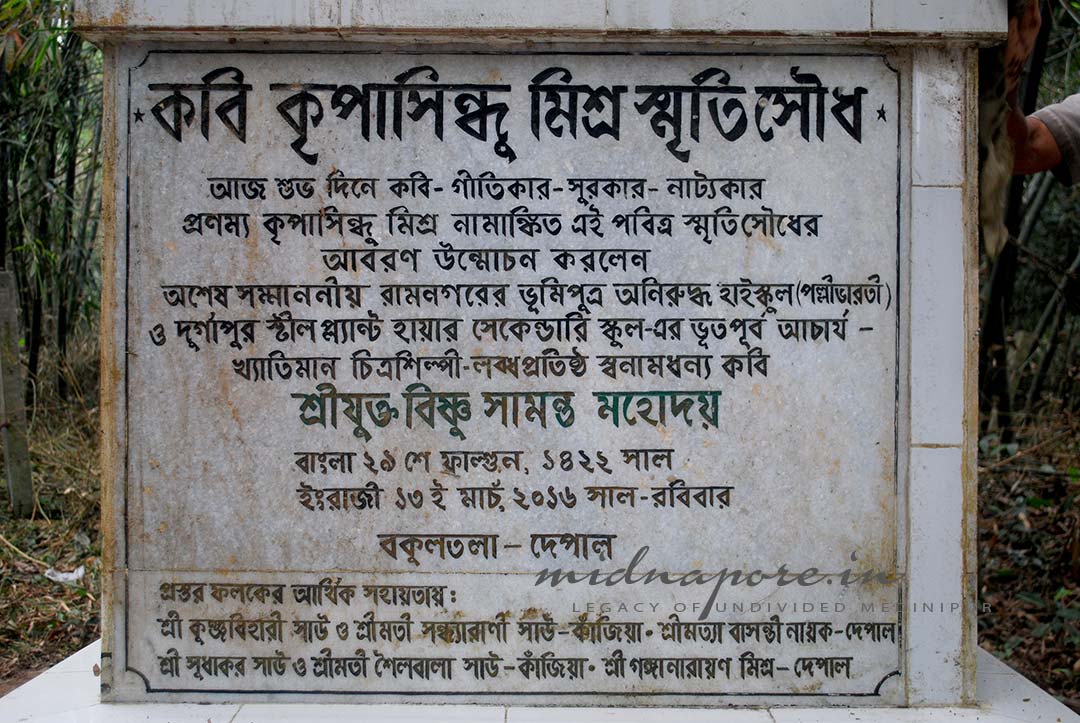 * কবি কৃপাসিন্ধু মিশ্র স্মৃতিসৌধ *
আজ শুভ দিনে কবি - গীতিকার - সুরকার - নাট্যকার
প্রণম্য কৃপাসিন্ধু মিশ্র নামাঙ্কিত এই পবিত্র স্মৃতিসৌধের
আবরণ উন্মোচন করলেন
অশেষ সম্মাননীয় রামনগরের ভূমিপুত্র অনিরুদ্ধ হাইস্কুল (পল্লীভারতী)
ও দুর্গাপুর স্টীল প্ল্যান্ট হায়ার সেকেন্ডারি স্কুল-এর ভূতপূর্ব আচার্য –
খ্যাতিমান চিত্রশিল্পী-লব্ধপ্রতিষ্ঠ স্বনামধন্য কবি
শ্রীযুক্ত বিষ্ণু সামন্ত মহোদয়
বাংলা ২৯ শে ফাল্গুন, ১৪২২ সাল
ইংরাজী ১৩ ই মার্চ, ২০১৬ সাল - রবিবার
বকুলতলা – দেপাল
midnapore.in
LEGACY OF UNDIVIDED MEDINIPUR
প্রস্তর ফলকের আর্থিক সহায়তায় :
শ্রী কুঞ্জবিহারী সাউ ও শ্রীমতী সন্ধ্যারাণী সাউ - কাঁজিয়া • শ্রীমত্যা বাসন্তী নায়ক - দেপাল
শ্রী সুধাকর সাউ ও শ্রীমতী শৈলবালা সাউ - কাঁজিয়া • শ্রী গঙ্গানারায়ণ মিশ্র – দেপাল